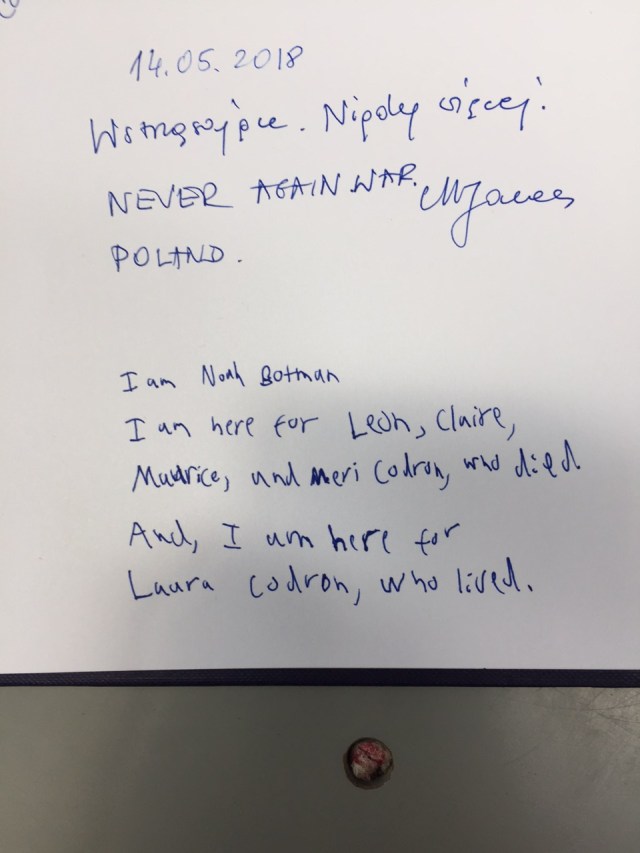 14.05.2018
Wstrząsające. Nigdy więcej!
NEVER AGAIN WAR.
POLAND.
I am Noah Botman
I am here for Leon, Claire,
Maurice, and Meri Codron, who died
And, I am here for
Laura Codron, who lived.